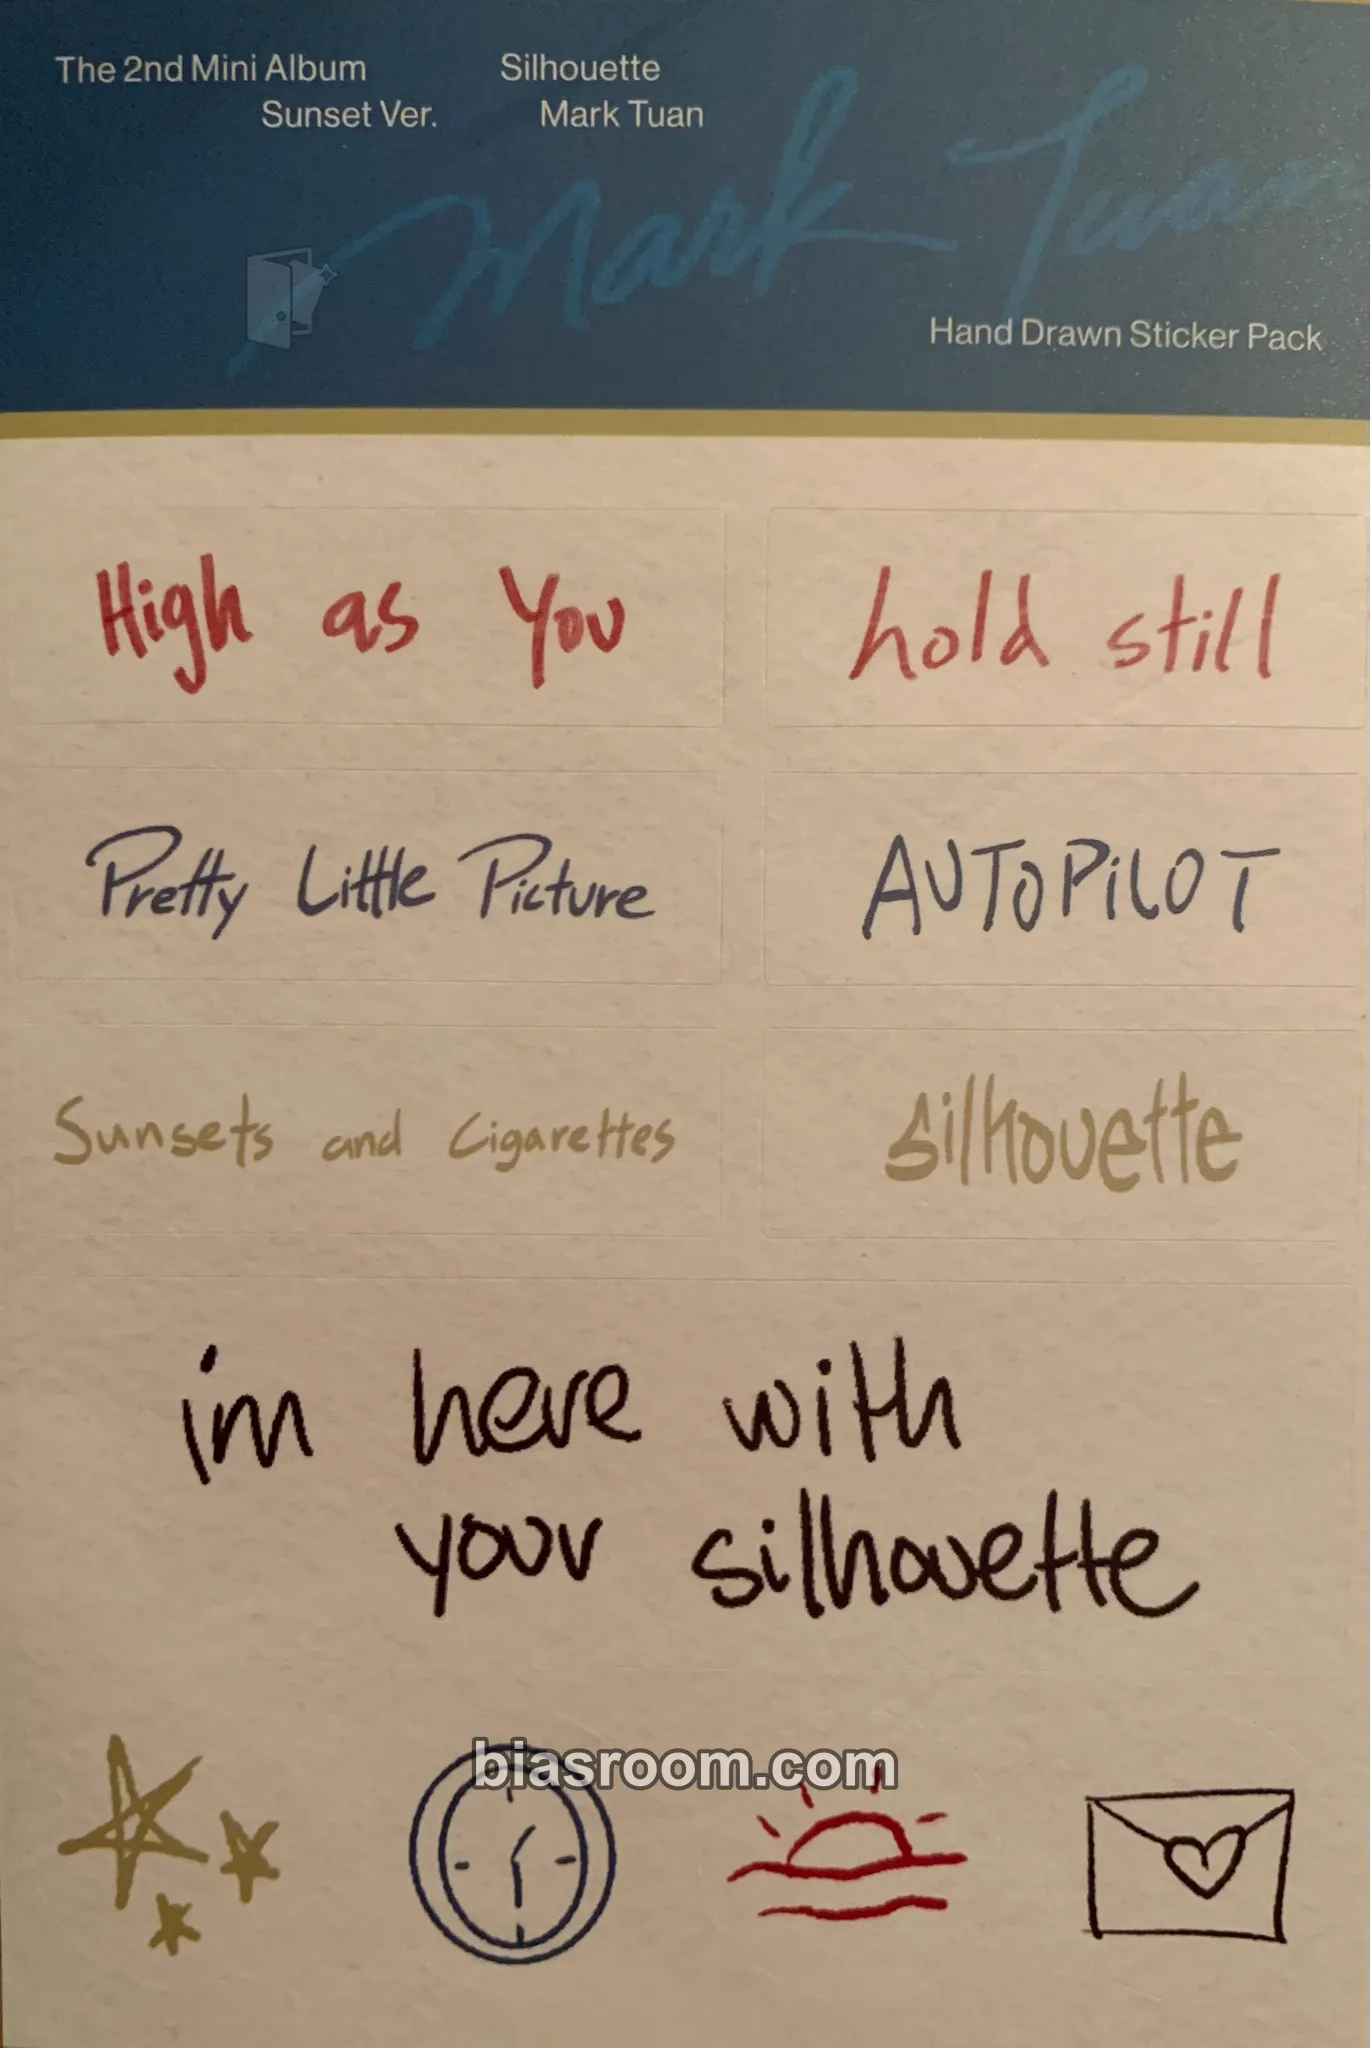 The 2nd Mini Album
Sunset Ver.
Silhouette
Mark Tuan
Mark Tuan
Hand Drawn Sticker Pack
High as You
hold still
Pretty Little Picture
AUTOPiLOT
Sunsets and Cigarettes
silhouette
i'm here with
your silhouette
biasroom.com